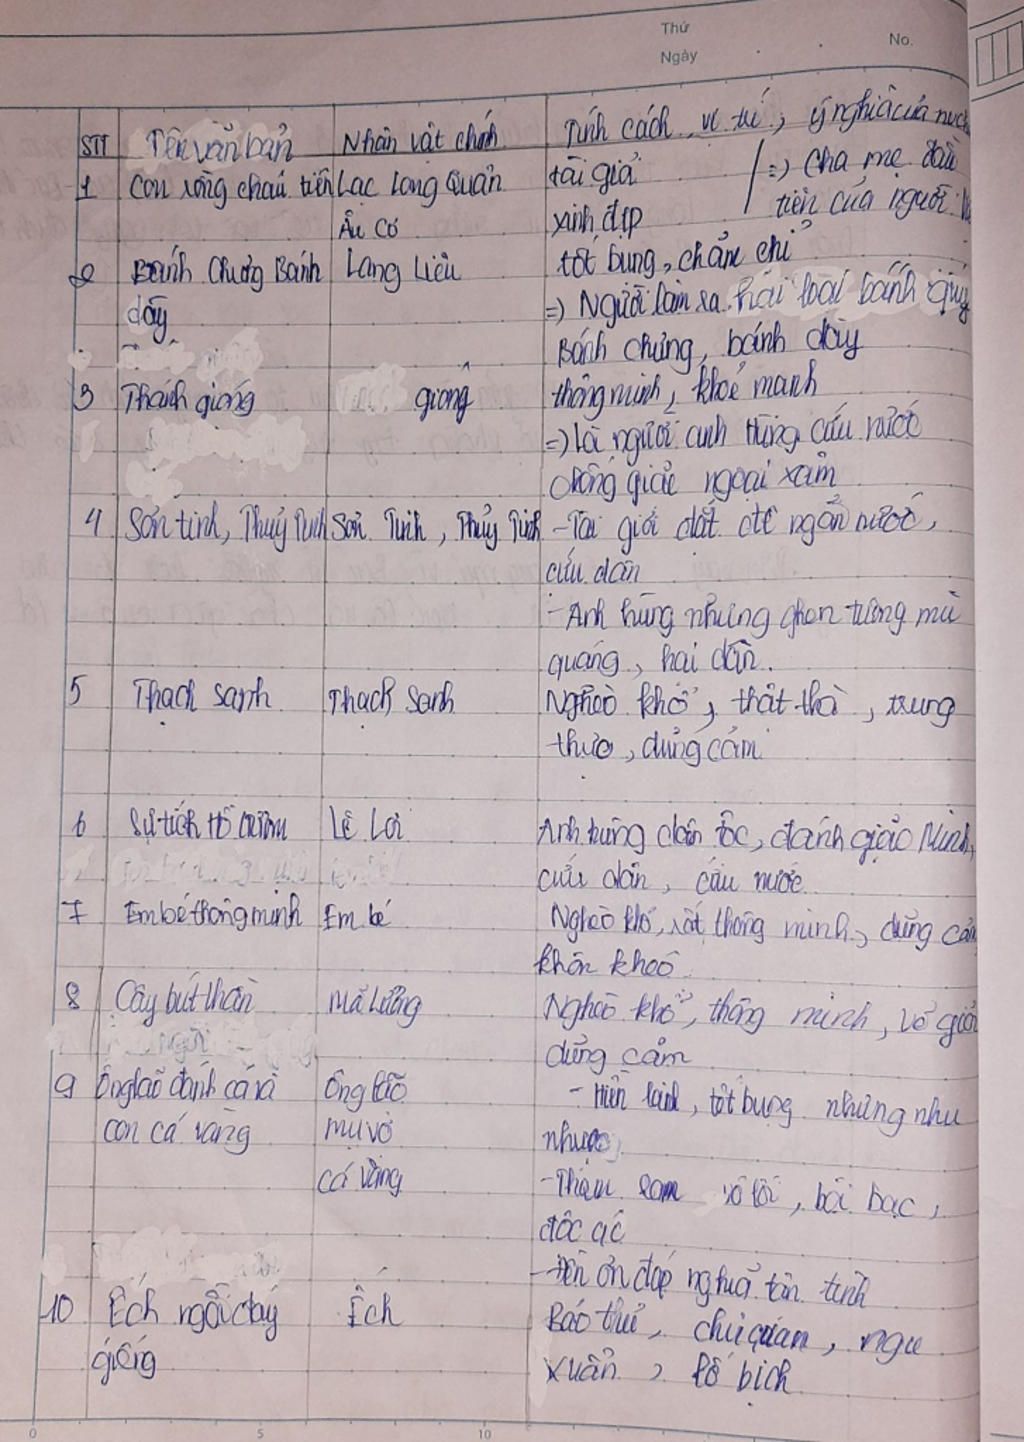 Thứ
Ngày
No.
STT Tên văn bản Nhân vật chính Tính cách, vị trí, ý nghĩa của
1 Con rồng cháu tiên Lạc Long Quân tài giỏi => Cha mẹ đầu
Âu Cơ xinh đẹp tiên của người
2 Bánh Chưng Bánh Lang Liêu tốt bụng, chăm chỉ
dầy => Người làm ra hai loại bánh quý
Bánh chưng, bánh dày
3 Thánh gióng gióng thông minh, khoẻ mạnh
=> Là người anh hùng cứu nước
chống giặc ngoại xâm
4 Sơn tinh, Thuỷ Tinh Sơn Tinh, Thủy Tinh - Tài giỏi đắt ngăn nước,
cứu dân
- Anh hùng nhưng ghen tuông mù
quáng, hại dân.
5 Thạch Sanh Thạch Sanh Nghèo khổ, thật thà, trung
thực, dũng cảm
6 Sự tích Hồ Gươm Lê Lợi Anh hùng dân tộc, đánh giặc Minh,
cứu dân, cứu nước
7 Em bé thông minh Em bé Nghèo khổ, rất thông minh, dũng cảm
khôn khéo
8 Cây bút thần Mã Lương Nghèo khổ, thông minh, vẽ giỏi
dũng cảm
9 Ông lão đánh cá và Ông lão - Hiền lành, tốt bụng nhưng nhu
con cá vàng mụ vợ nhược
cá vàng - Tham lam vô lối, bội bạc,
độc ác
- đền ơn đáp nghĩa tận tình
10 Ếch ngồi đáy Ếch Báo thủ, chủ quan, ngu
giếng xuẩn, lố bịch
0 5 10